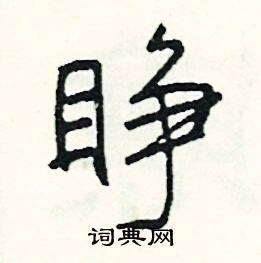 睁
词典网